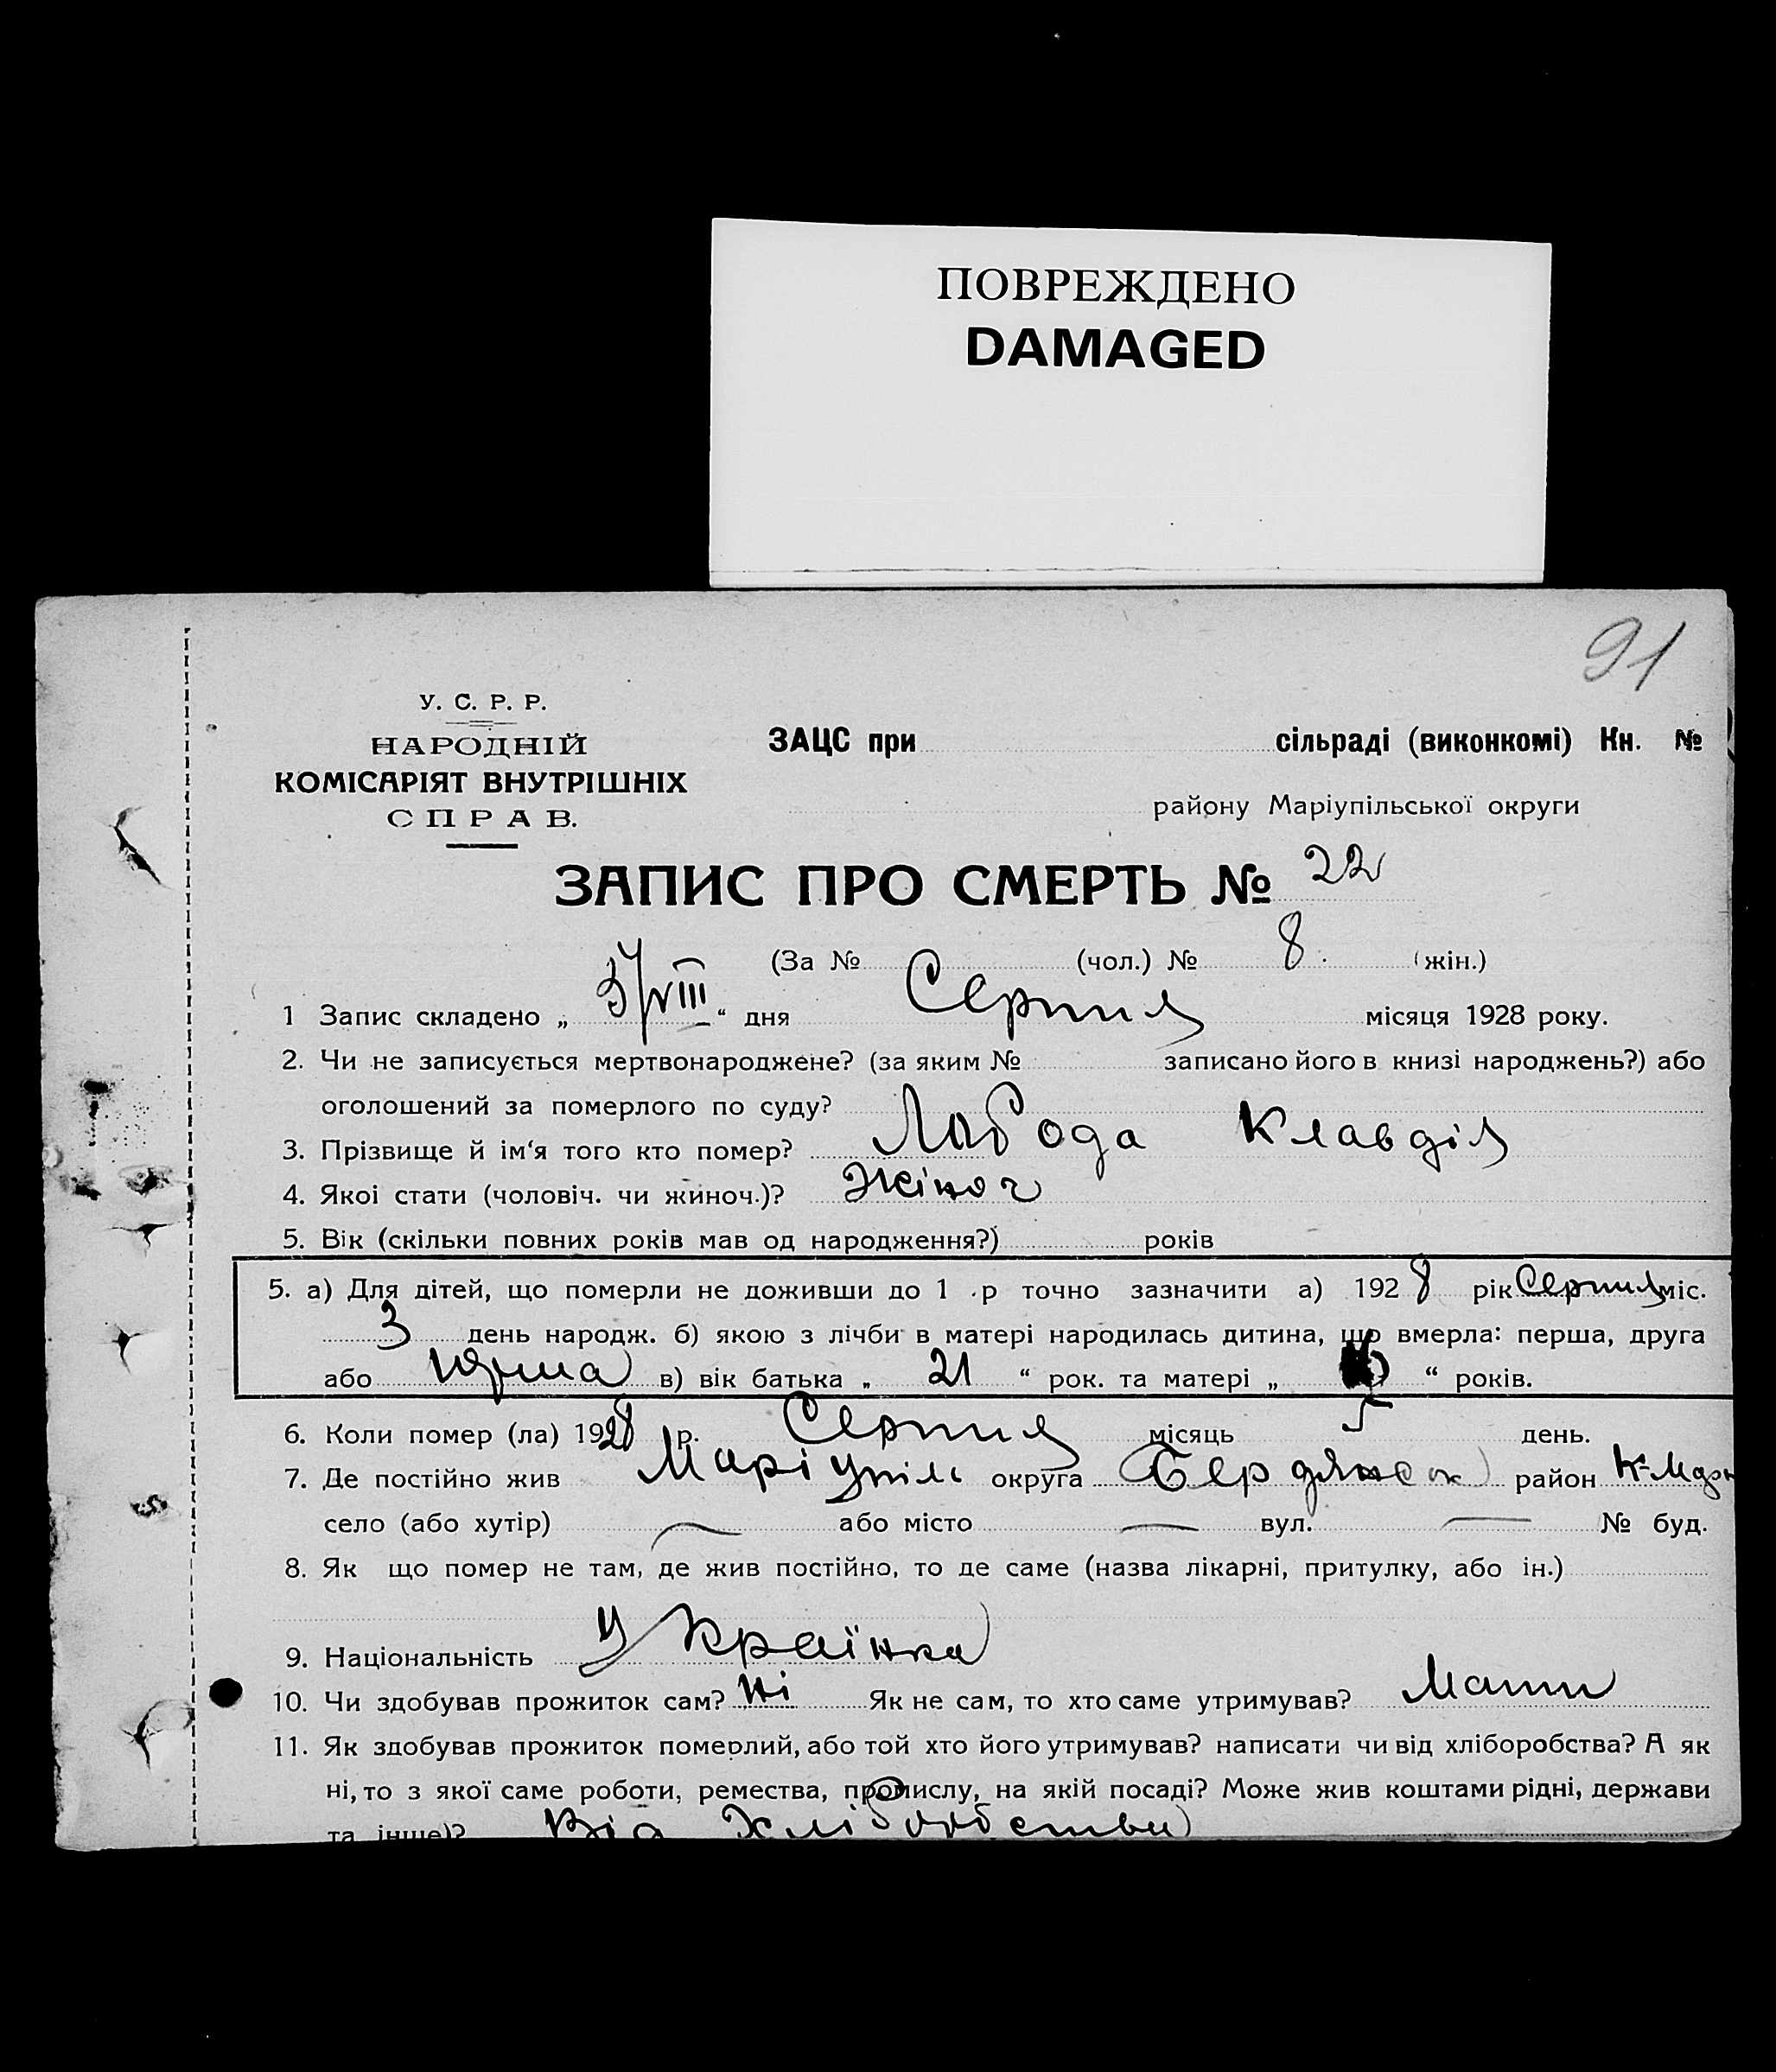 ПОВРЕЖДЕНО
DAMAGED
91
У. С. Р. Р.
НАРОДНІЙ
КОМІСАРІЯТ ВНУТРІШНІХ
СПРАВ.
ЗАЦС при сільраді (виконкомі) Кн. №
району Маріупільської округи
ЗАПИС ПРО СМЕРТЬ № 22
(За № (чол.) № 8. (жін.)
1 Запис складено „ 5/VIII “ дня Серпня місяця 1928 року.
2. Чи не записується мертвонароджене? (за яким № записано його в книзі народжень?) або
оголошений за померлого по суду?
3. Прізвище й ім‘я того кто помер? Лобода Клавдія
4. Якоі стати (чоловіч. чи жиноч.)? Жіноч
5. Вік (скільки повних років мав од народження?) років
5. а) Для дітей, що померли не доживши до 1 р точно зазначити а) 1928 рік Серпня міс.
3 день народж. б) якою з лічби в матері народилась дитина, що вмерла: перша, друга
або в) вік батька „ 21 “ рок. та матері „ “ років.
6. Коли помер (ла) 1928 р. Серпня місяць 5 день.
7. Де постійно жив Маріупіль округа Бердянськ район
село (або хутір) — або місто — вул. — № буд.
8. Як що помер не там, де жив постійно, то де саме (назва лікарні, притулку, або ін.)
9. Національність Українка
10. Чи здобував прожиток сам? Ні Як не сам, то хто саме утримував? Мати
11. Як здобував прожиток померлий, або той хто його утримував? написати чи від хліборобства? А як
ні, то з якої саме роботи, ремества, промислу, на якій посаді? Може жив коштами рідні, держави
та інше)? Від Хліборобства